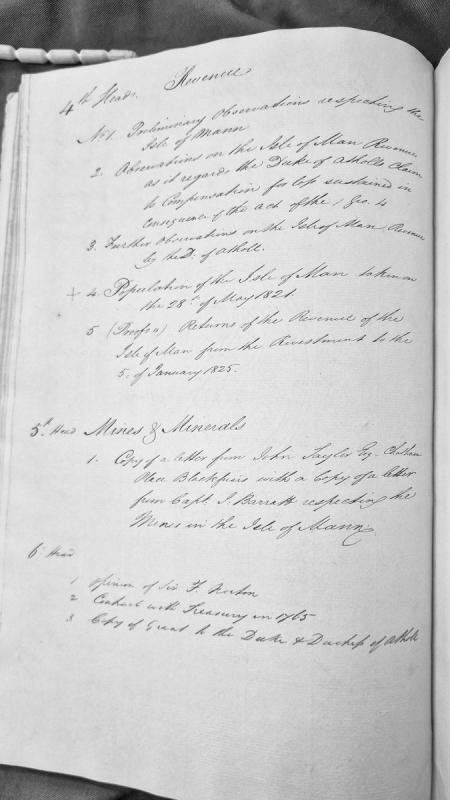 4th Head. Revenue
No 1. Preliminary Observations respecting the
Isle of Mann
2. Observations on the Isle of Man Revenue
as it regards the Duke of Atholls Claim
to Compensation for loss sustained in
consequence of the act of the 1 Geo. 4
3. Further Observations on the Isle of Man Revenue
by the D. of Atholl.
+ 4. Population of the Isle of Man taken on
the 28th of May 1821.
5 (Proofs) Returns of the Revenue of the
Isle of Man from the Revestment to the
5. of January 1825.
5th Head Mines & Minerals
1. Copy of a letter from John Taylor Esq. Chatham
Place Blackfriars with a Copy of a letter
from Capt. J. Barratt respecting the
Mines in the Isle of Mann
6th Head
1 Opinion of Sir F. Norton
2 Contract with Treasury in 1765
3 Copy of Grant to the Duke & Duchess of Atholl